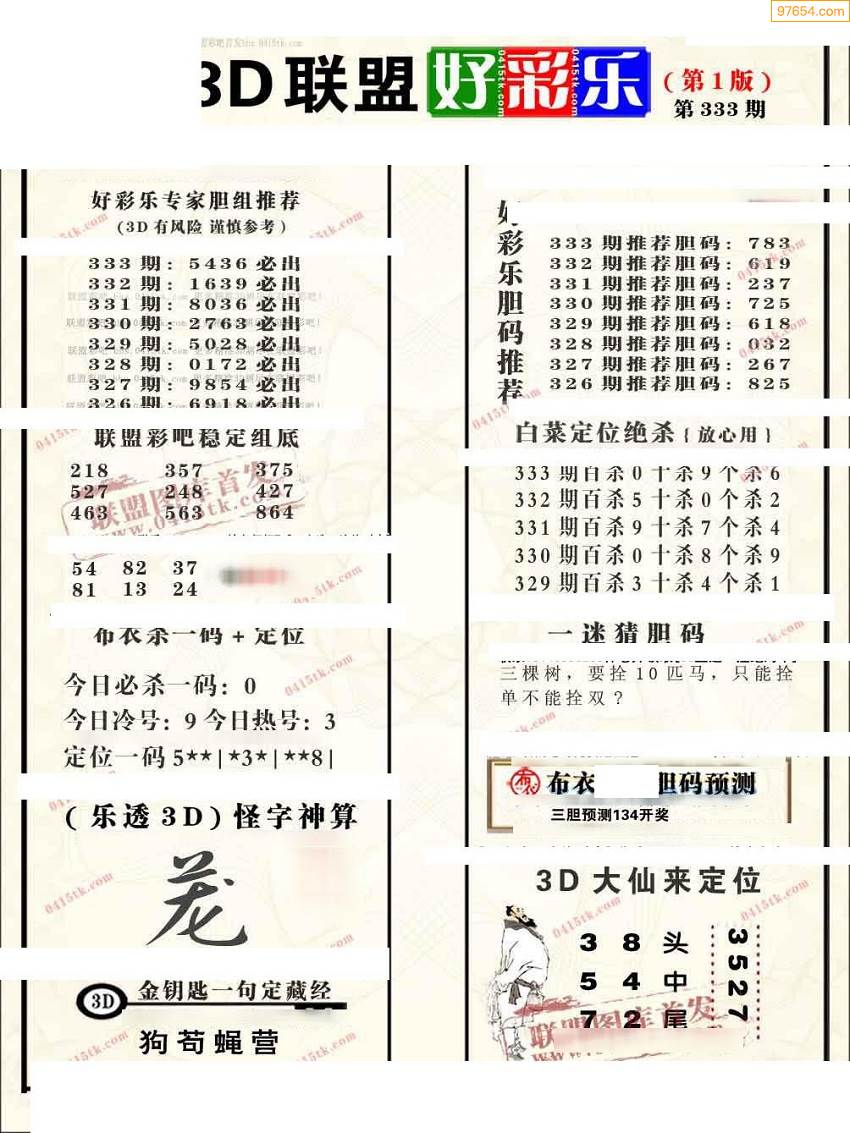 97654.com
3D联盟好彩乐
(第1版)
第333期
好彩乐专家胆组推荐
(3D有风险 谨慎参考)
333期: 5436必出
332期: 1639必出
331期: 8036必出
330期: 2763必出
329期: 5028必出
328期: 0172必出
327期: 9854必出
326期: 6918必出
联盟彩吧稳定组底
218 357 375
527 248 427
463 563 864
54 82 37
81 13 24
布衣杀一码+定位
今日必杀一码: 0
今日冷号: 9 今日热号: 3
定位一码 5**|*3*|**8|
(乐透3D)怪字神算
3D 金钥匙一句定藏经
狗苟蝇营
好彩乐胆码推荐
333期推荐胆码: 783
332期推荐胆码: 619
331期推荐胆码: 237
330期推荐胆码: 725
329期推荐胆码: 618
328期推荐胆码: 032
327期推荐胆码: 267
326期推荐胆码: 825
白菜定位绝杀{放心用}
333期百杀0十杀9个杀6
332期百杀5十杀0个杀2
331期百杀9十杀7个杀4
330期百杀0十杀8个杀9
329期百杀3十杀4个杀1
一迷猜胆码
三棵树，要拴10匹马，只能拴
单不能拴双？
布衣 胆码预测
三胆预测134开奖
3D大仙来定位
3 8 头
5 4 中
7 2 尾
3527
联盟图库首发
www.0415tk.com
0415tk.com